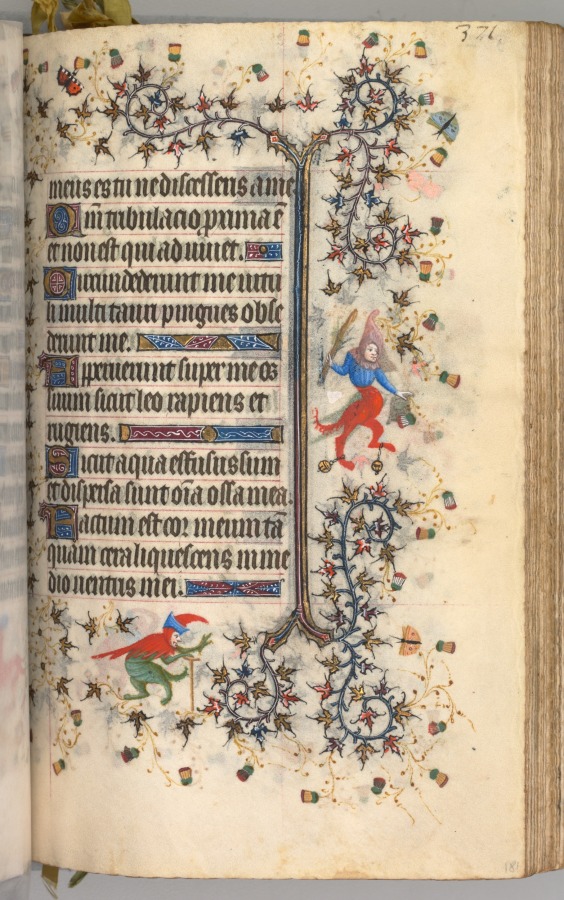 371.
meus es tu ne discesseris a me
Qm̄ tribulacio proxima ē
et non est qui adiuuet.
Circundederunt me uitu
li multi tauri pingues obse
derunt me.
Apperuerunt super me os
suum sicut leo rapiens et
rugiens.
Sicut aqua effusus sum
et dispersa sunt oīa ossa mea.
Factum est cor meum tā
quam cera liquescens in me
dio uentris mei.
181